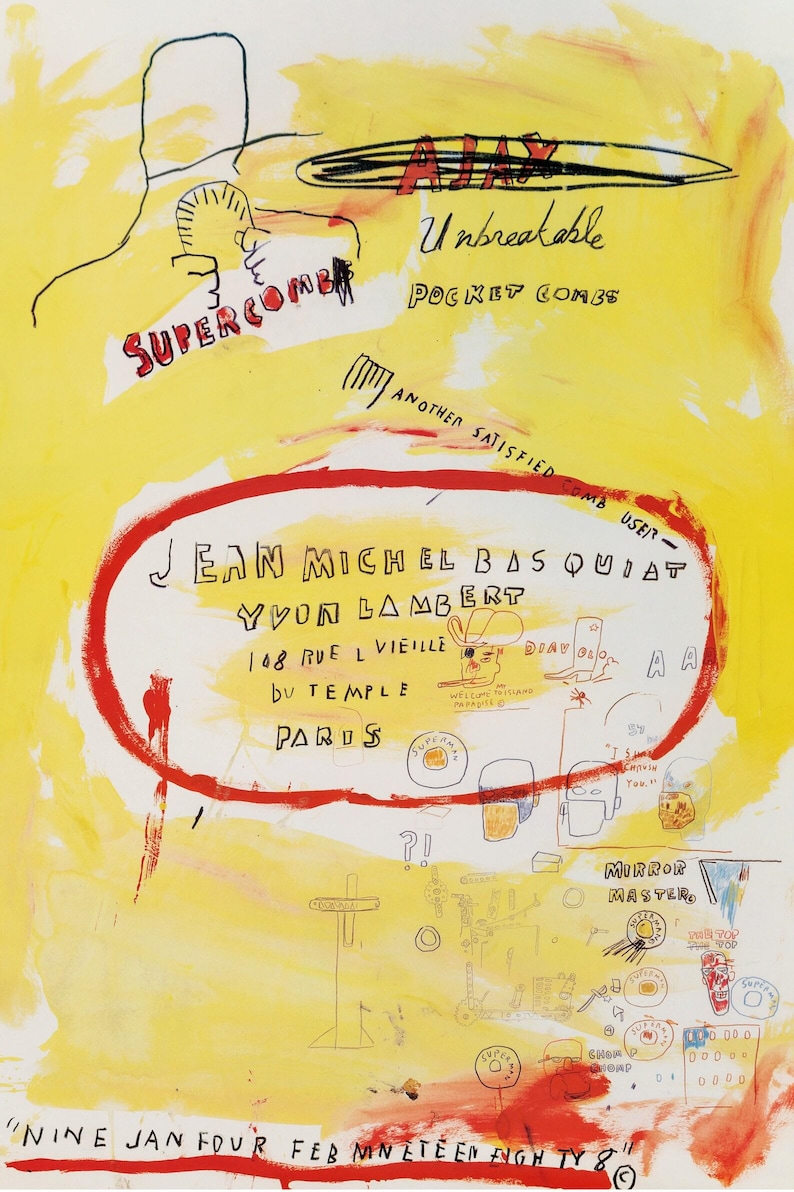 AJAX
Unbreakable
POCKET COMBS
SUPERCOMB
ANOTHER SATISFIED COMB USER—
JEAN MICHEL BASQUIAT
YVON LAMBERT
108 RUE L VIEILLE
DU TEMPLE
PARIS
DIAVOLO
A A
MY
WELCOME TO ISLAND
PARADISE ©
SUPERMAN
CHRUSH
YOU."
?!
MIRROR
MASTER©
SUPERMAN©
THE TOP
THE TOP
SUPERMAN
SUPERMAN
SUPERMAN
SUPERMAN
CHOMP
CHOMP
"NINE JAN FOUR FEB NINETEEN EIGHTY 8" ©